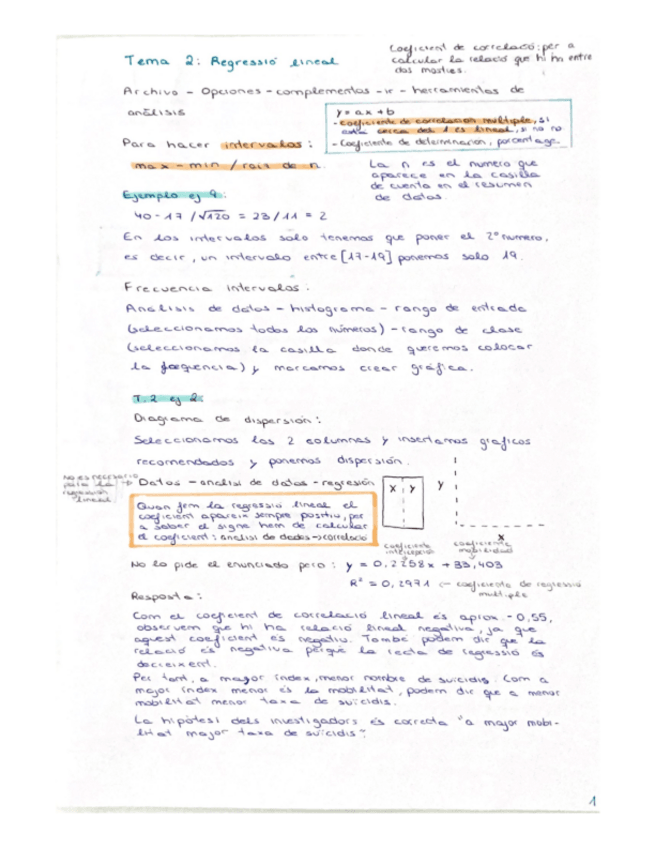 Tema 2: Regressió lineal
Coeficient de correlació: per a
calcular la relació que hi ha entre
dos mostres.
Archivo - Opciones - complementos - ir - herramientas de
análisis
y = ax + b
- coeficiente de correlacion multiple, si
esta cerca del 1 es lineal, si no no
- Coeficiente de determinacion, porcentage
Para hacer intervalos:
max - min / raiz de n.
La n es el numero que
aparece en la casilla
de cuenta en el resumen
de datos.
Ejemplo ej 9:
40 - 17 / √120 = 23 / 11 = 2
En los intervalos solo tenemos que poner el 2º numero,
es decir, un intervalo entre [17-19] ponemos solo 19.
Frecuencia intervalos:
Analisis de datos - histograma - rango de entrada
(seleccionamos todos los números) - rango de clase
(seleccionamos la casilla donde queremos colocar
la frequencia) y marcamos crear gráfica.
T.2 ej 2:
Diagrama de dispersión:
Seleccionamos las 2 columnas y insertamos graficos
recomendados y ponemos dispersión.
No es necesario
para la
regresion
lineal
→ Datos - analisi de datos - regresión
x y
y
x
Quan fem la regressió lineal el
coeficient apareix sempre positiu, per
a saber el signe hem de calcular
el coeficient: analisi de dades → correlació
coeficiente
intercepción
coeficiente
mobilidad
No lo pide el enunciado pero: y = 0,2258x + 33,403
R² = 0,2971 ← coeficiente de regressió
multiple
Resposta:
Com el coeficient de correlació lineal és aprox. -0,55,
observem que hi ha relació lineal negativa, ja que
aquest coeficient és negatiu. També podem dir que la
relació és negativa perquè la recta de regressió és
decreixent.
Per tant, a major índex, menor nombre de suicidis. Com a
major índex menor és la mobilitat, podem dir que a menor
mobilitat menor taxa de suïcidis.
La hipòtesi dels investigadors és correcta "a major mobi-
litat major taxa de suïcidis".
1